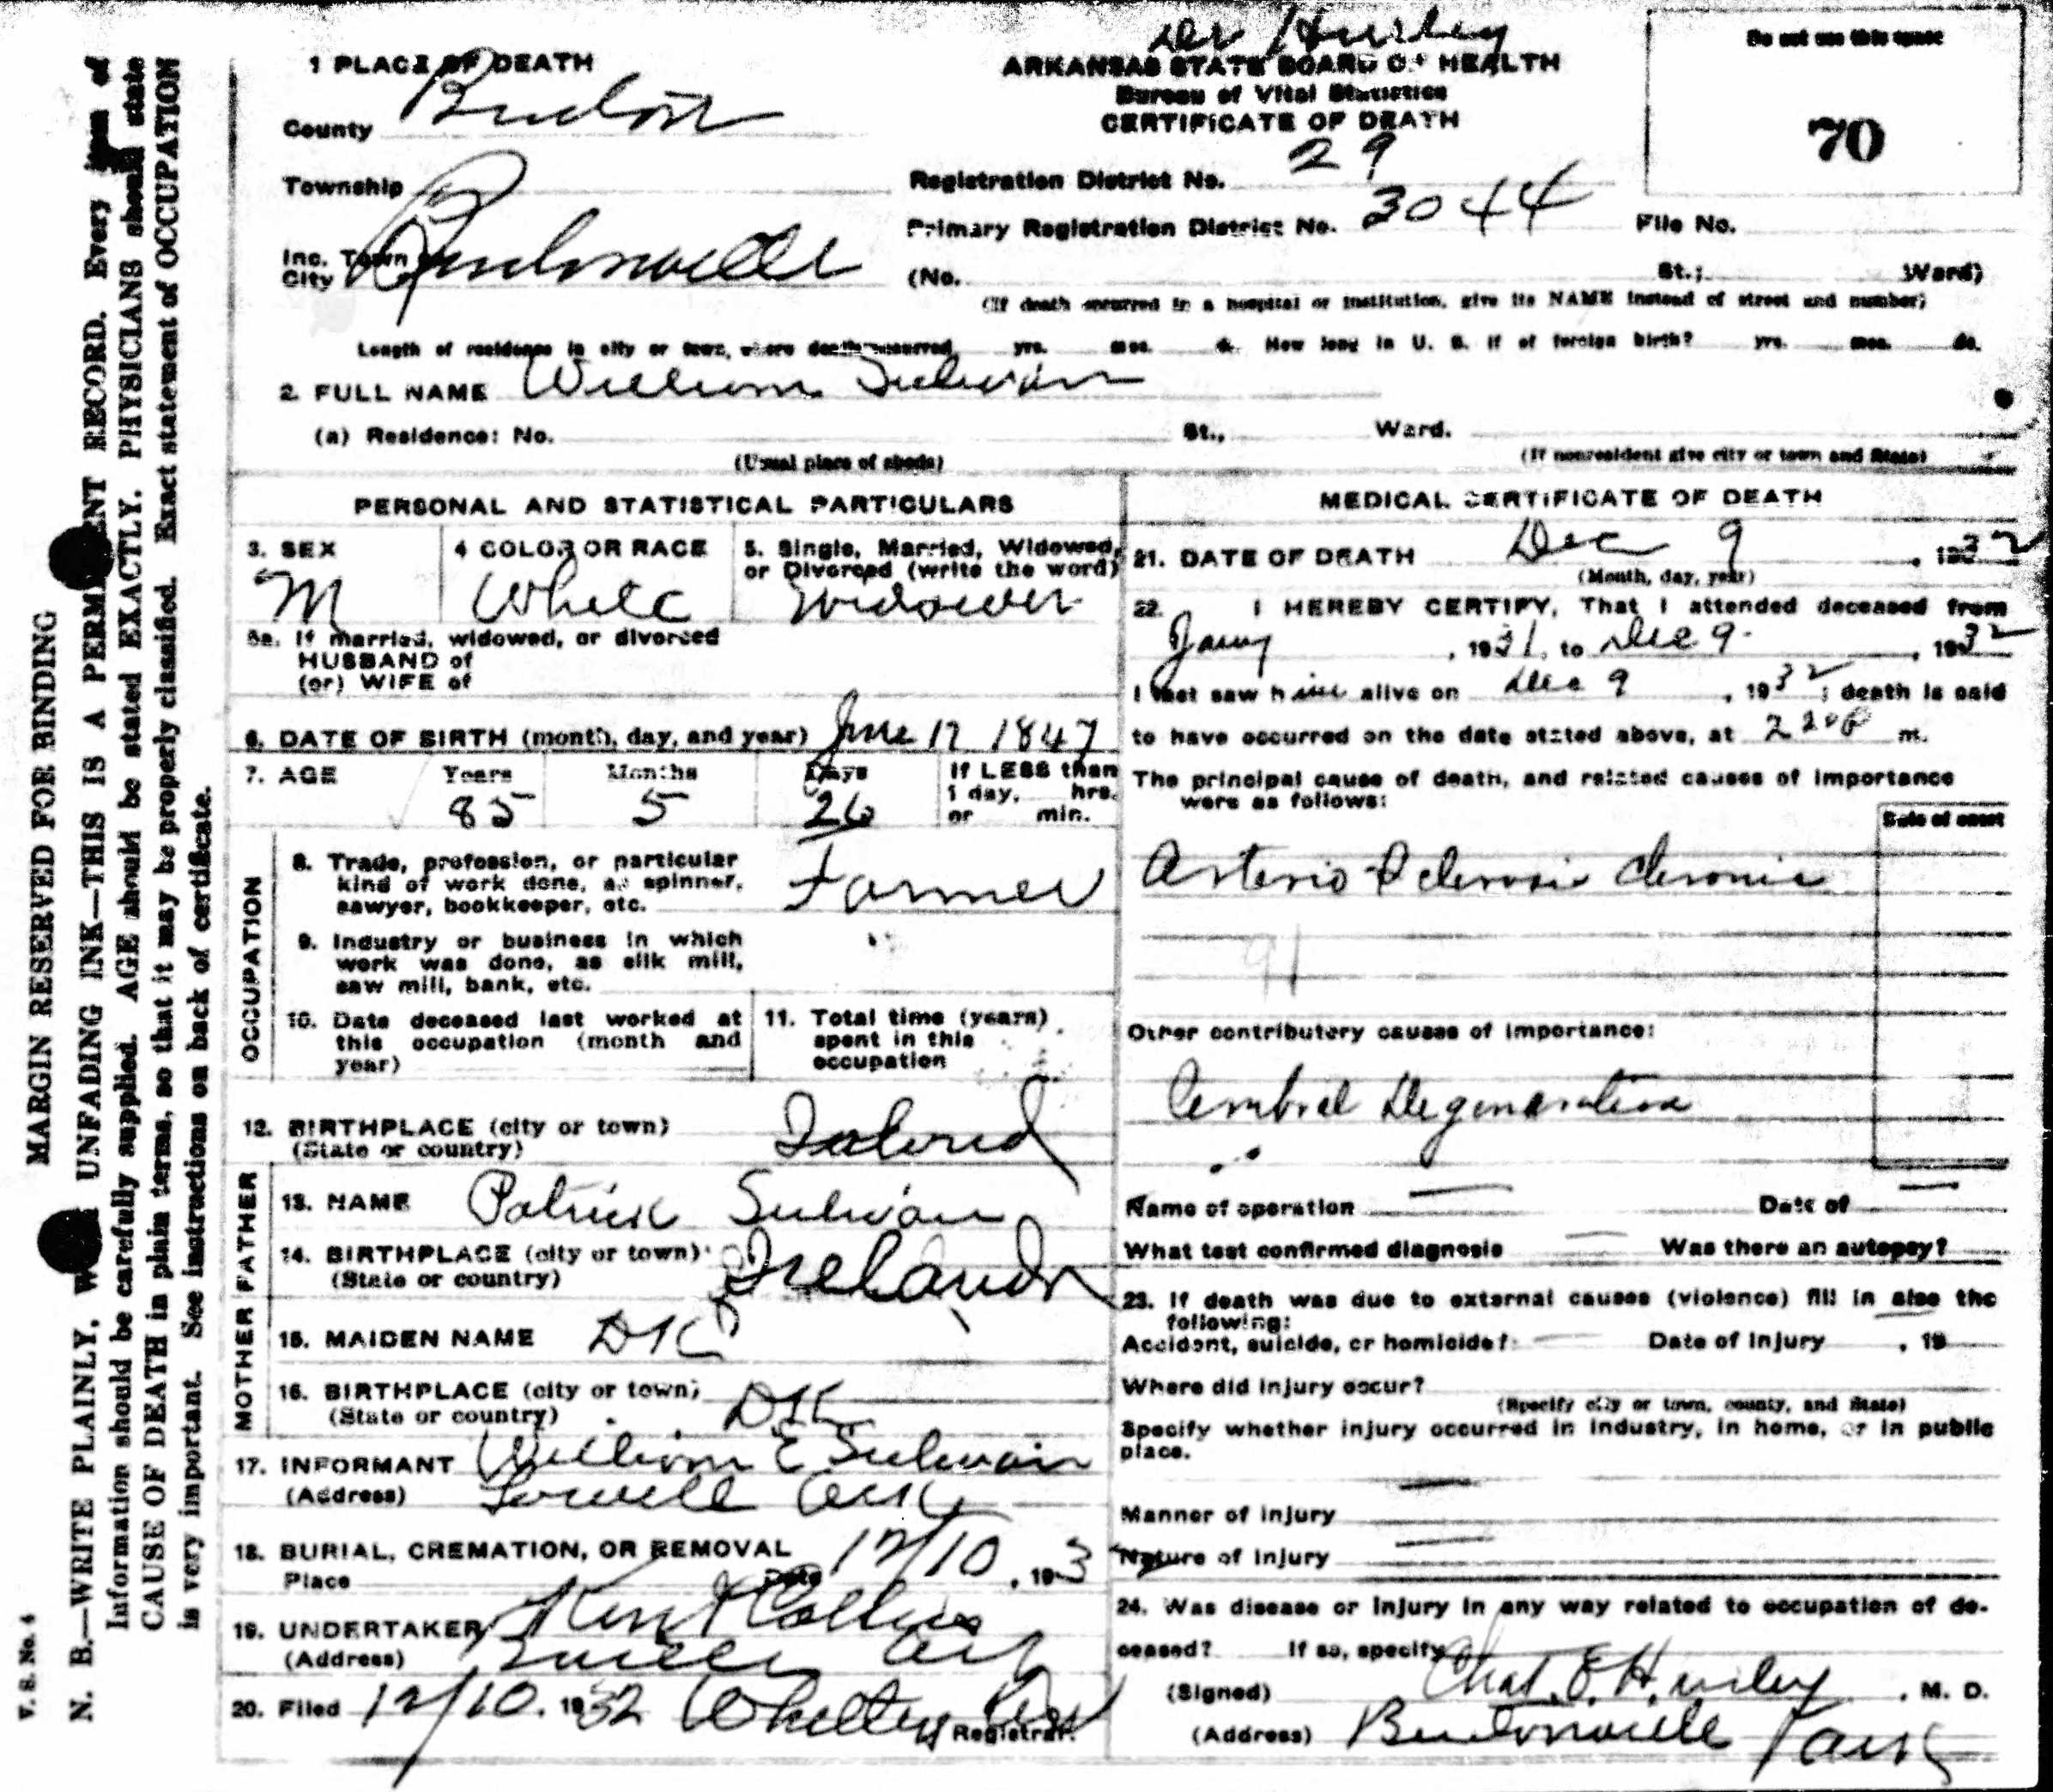 Dr Hurley
1 PLACE OF DEATH
ARKANSAS STATE BOARD OF HEALTH
Bureau of Vital Statistics
CERTIFICATE OF DEATH
Do not use this space
70
County Benton
Township
Registration District No. 29
Primary Registration District No. 3044
File No.
Inc. Town
City Bentonville
(No. St.; Ward)
(If death occurred in a hospital or institution, give its NAME instead of street and number)
Length of residence in city or town, where death occurred yrs. mos. ds. How long in U. S. if of foreign birth? yrs. mos. ds.
2. FULL NAME William Sulivan
(a) Residence: No. St., Ward.
(Usual place of abode) (If nonresident give city or town and State)
PERSONAL AND STATISTICAL PARTICULARS
3. SEX
M
4 COLOR OR RACE
White
5. Single, Married, Widowed,
or Divorced (write the word)
Widower
5a. If married, widowed, or divorced
HUSBAND of
(or) WIFE of
6. DATE OF BIRTH (month, day, and year) June 17 1847
7. AGE Years Months Days If LESS than
1 day, hrs.
or min.
85 5 26
OCCUPATION
8. Trade, profession, or particular
kind of work done, as spinner,
sawyer, bookkeeper, etc. Farmer
9. Industry or business in which
work was done, as silk mill,
saw mill, bank, etc.
10. Date deceased last worked at
this occupation (month and
year)
11. Total time (years)
spent in this
occupation
12. BIRTHPLACE (city or town)
(State or country)
MOTHER FATHER
13. NAME Patrick Sulivan
14. BIRTHPLACE (city or town)
(State or country) Ireland
15. MAIDEN NAME DK
16. BIRTHPLACE (city or town)
(State or country) DK
17. INFORMANT William E Sulivan
(Address) Lowell Ark
18. BURIAL, CREMATION, OR REMOVAL
Place Date 12/10, 193
19. UNDERTAKER Collins
(Address) Ark
20. Filed 12/10, 1932
Registrar.
MEDICAL CERTIFICATE OF DEATH
21. DATE OF DEATH Dec 9, 1932
(Month, day, year)
22. I HEREBY CERTIFY, That I attended deceased from
Jany, 1931, to Dec 9, 1932
I last saw him alive on Dec 9, 1932; death is said
to have occurred on the date stated above, at 2 20 P m.
The principal cause of death, and related causes of importance
were as follows:
Date of onset
Arterio Sclerosis Chronic
91
Other contributory causes of importance:
Cerebral Degeneration
Name of operation Date of
What test confirmed diagnosis Was there an autopsy?
23. If death was due to external causes (violence) fill in also the
following:
Accident, suicide, or homicide? Date of injury, 19
Where did injury occur?
(Specify city or town, county, and State)
Specify whether injury occurred in industry, in home, or in public
place.
Manner of injury
Nature of injury
24. Was disease or injury in any way related to occupation of de-
ceased? If so, specify
(Signed) Chas. E. Hurley, M. D.
(Address) Bentonville Ark
MARGIN RESERVED FOR BINDING
V. S. No. 4
N. B.—WRITE PLAINLY, UNFADING INK—THIS IS A PERMANENT RECORD. Every item of
Information should be carefully supplied. AGE should be stated EXACTLY. PHYSICIANS should state
CAUSE OF DEATH in plain terms, so that it may be properly classified. Exact statement of OCCUPATION
is very important. See instructions on back of certificate.